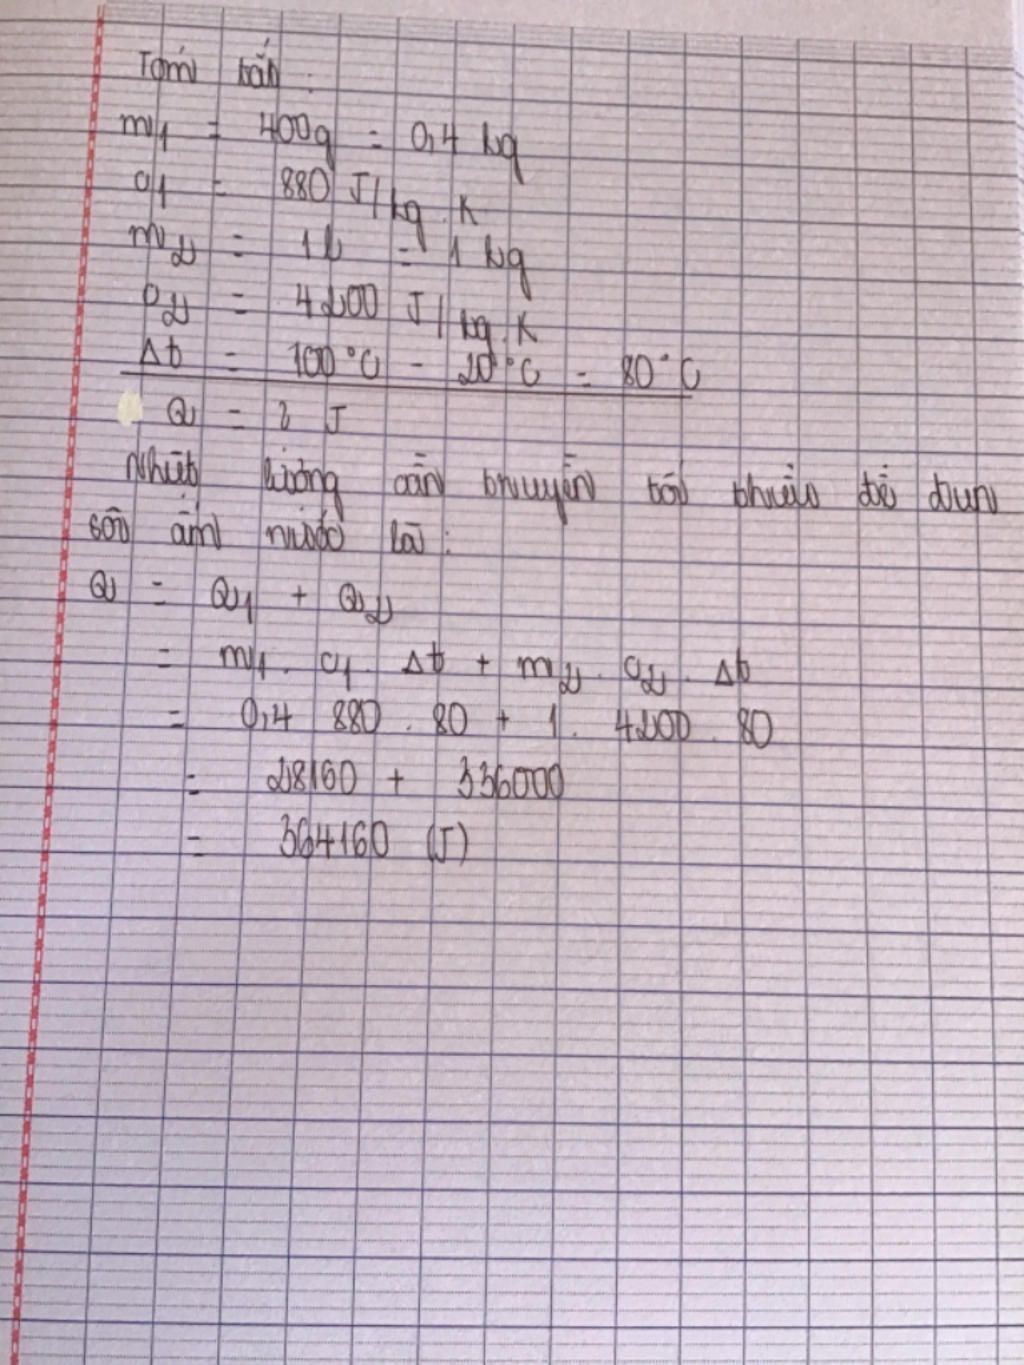 Tóm tắt :
m1 = 400g = 0,4 kg
c1 = 880 J/kg.K
m2 = 1l = 1 kg
c2 = 4200 J/kg.K
Δt = 100°C - 20°C = 80°C
Q = ? J
Nhiệt lượng cần truyền tối thiểu để đun
sôi ấm nước là :
Q = Q1 + Q2
= m1. c1. Δt + m2. c2. Δt
= 0,4 880 . 80 + 1. 4200 . 80
= 28160 + 336000
= 364160 (J)